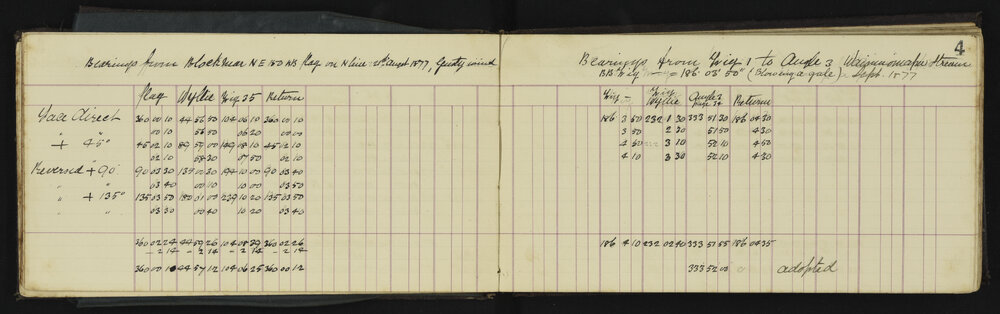 4
Bearings from Block near N E 180 NB flag on N line 21st August 1877, Gusty wind
Flag Wyllie Trig 35 Return
Face Direct 360 00 10 44 56 50 104 06 10 360 00 10
" " 00 10 56 50 06 20 00 00
" + 45° 45 02 10 89 59 00 149 08 10 45 02 10
" 02 10 58 30 07 50 02 10
Reversed + 90 90 03 30 135 00 30 194 10 00 90 03 40
03 40 00 10 10 00 03 50
" + 135° 135 03 50 180 01 00 239 10 20 135 03 50
" " 03 30 00 40 10 20 03 40
360 02 24 44 59 26 104 08 39 360 02 26
- 2 14 - 2 14 - 2 14 - 2 14
360 00 10 44 57 12 104 06 25 360 00 12
Bearings from Trig 1 to Angle 3 Stream
BB Trig 186° 03' 50" (Blowing a gale) Sept. 1877
Trig Trig Wyllie Angle 3 page 34 Return
186 3 50 232 1 30 333 51 30 186 04 30
3 50 2 30 51 50 4 30
4 50 3 10 52 10 4 50
4 10 3 30 52 10 4 30
186 4 10 232 02 40 333 51 55 186 04 35
333 52 00 adopted